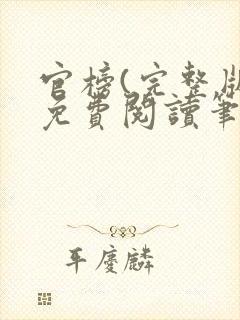 官榜(完整版
免費閱讀筆
平慶麟